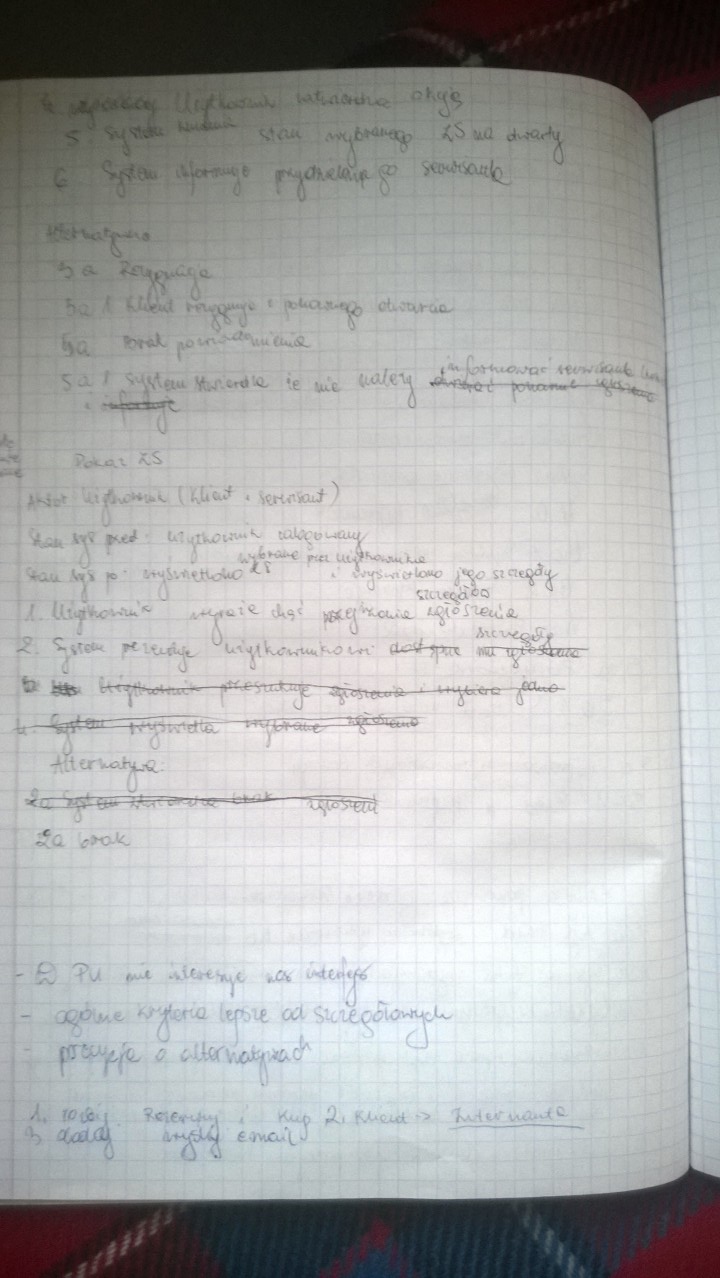 4 Użytkownik zatwierdza chęć
5 System stan wybranego ZS na otwarty
6 System informuje przydzielonego serwisanta
Alternatywa
3a Rezygnacja
3a 1 Klient rezygnuje z ponownego otwarcia
5a Brak powiadomienia
5a 1 System stwierdza że nie należy informować serwisanta
i informuje
Pokaż ZS
Aktor Użytkownik (Klient i serwisant)
Stan sys przed: użytkownik zalogowany
wybrane przez użytkownika
Stan sys po: wyświetlono ZS i wyświetlono jego szczegóły
szczegółów
1. Użytkownik wyraża chęć przejrzenia zgłoszenia
szczegóły
2. System prezentuje użytkownikowi dostępne mu zgłoszenia
3. Użytkownik przeszukuje zgłoszenia i wybiera jedno
4. System wyświetla wybrane zgłoszenie
Alternatywa:
2a System stwierdza brak zgłoszeń
2a brak
- W PU nie interesuje nas interfejs
- ogólne kryteria lepsze od szczegółowych
- precyzja o alternatywach
1. Rezerwuj i Kup 2. Klient -> Internauta
3 dodaj wyślij email